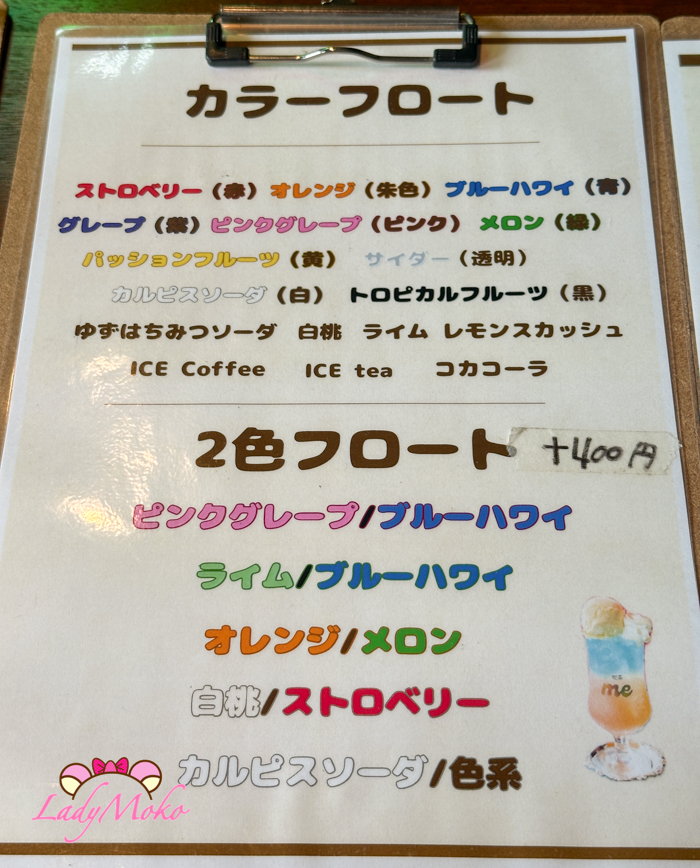 カラーフロート
ストロベリー（赤） オレンジ（朱色） ブルーハワイ（青）
グレープ（紫） ピンクグレープ（ピンク） メロン（緑）
パッションフルーツ（黄） サイダー（透明）
カルピスソーダ（白） トロピカルフルーツ（黒）
ゆずはちみつソーダ 白桃 ライム レモンスカッシュ
ICE Coffee ICE tea コカコーラ
2色フロート +400円
ピンクグレープ/ブルーハワイ
ライム/ブルーハワイ
オレンジ/メロン
me
白桃/ストロベリー
カルピスソーダ/色系
LadyMoko